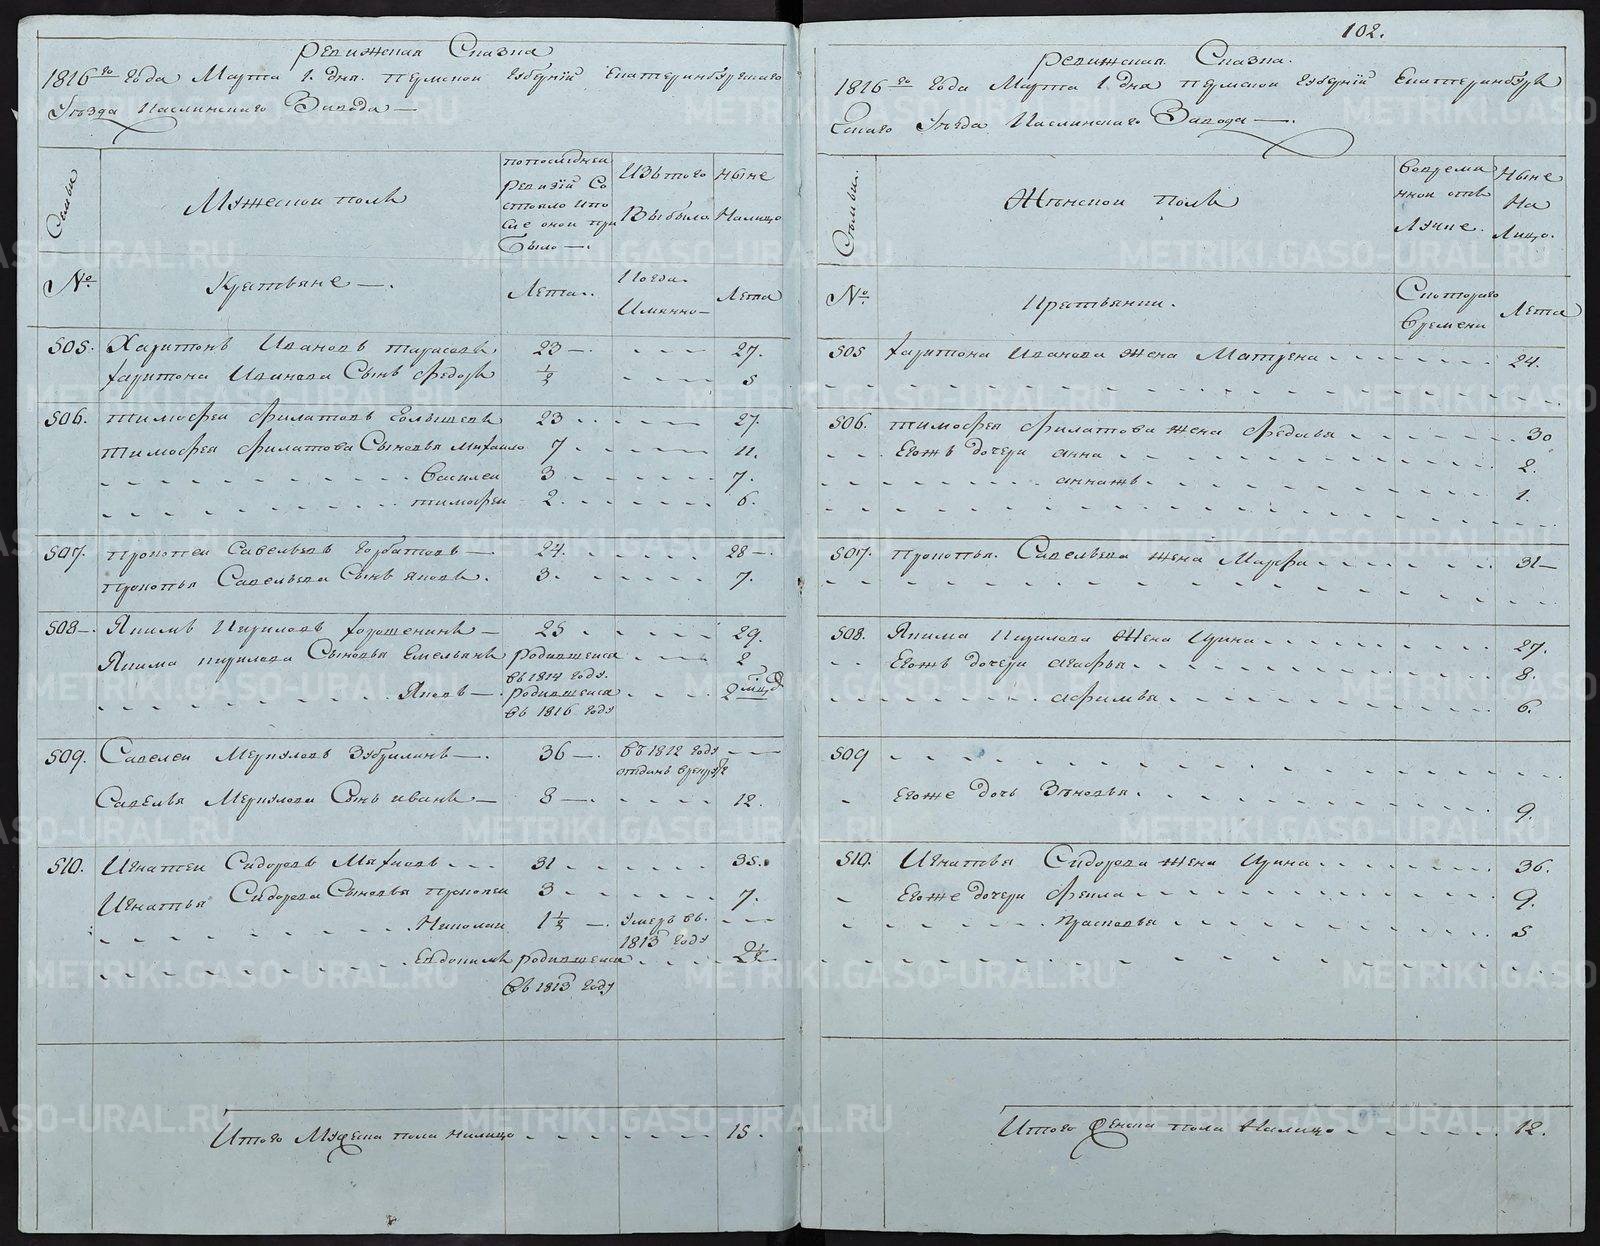 Ревижская Сказка
1816го Года Марта 1. дня. Пермской Губернiи Екатеринбургскаго
Уезда Каслинскаго Завода —
Семьи
Мужескои полъ
попоследнеи
Ревизiи Со
стояло ипо
сле онои при
было —.
Изътого
Выбыло
Ныне
Налицо
№.
Крестьяне —.
Лета.
Когда.
Имянно —
Лета
505. Харитонъ Ивановъ тарасовъ. 23 —. 27.
Харитона Иванова Сынъ Федоръ 1/2 5
506. Тимофеи Филатовъ Голышевъ 23 27.
Тимофея Филатова Сыновья Михаило 7 11.
Василеи 3 7.
Тимофеи 2. 6.
507. Прокопеи Савельевъ Горбатовъ —. 24. 28 —.
Прокопья Савельева Сынъ Яковъ. 3. 7.
508 —. Якимъ Кириловъ Хорошенинъ — 25 29.
Якима Кирилова Сыновья Емельянъ родившеися 2
въ 1814 году.
Яковъ —. родившеися 2 мцъ
въ 1816 году
509. Савелеи Меркуловъ Зубрилинъ —. 36 —. въ 1812 году
отданъ врекруты
Савелья Меркулова Сынъ иванъ — 8 —. 12.
510. Игнатеи Сидоровъ Мяхковъ 31 35.
Игнатья Сидорова Сыновья прокопеи 3 7.
Николаи 1 1/2 —. Умеръ въ.
1813 году
Евдокимъ родившеися 2 1/2
въ 1813 году
Итого Мужеска пола налицо 15.
102.
Ревижская Сказка.
1816го Года Марта 1 дня Пермскои Губернiи Екатеринбург
Скаго Уезда Каслинскаго Завода —.
Семьи.
Женскои полъ
Вовреми
ннои отлу
Лучке.
Ныне
На
Лицо.
№.
Крестьянки.
Скотораго
Времени
Лета
505 Харитона Иванова жена Матрена 24.
506. Тимофея Филатова жена Федосья 30
Егожъ дочери анна 2.
аннажъ 1.
507. Прокопья. Савельева жена Марфа 31 —
508. Якима Кирилова Жена Ирина 27.
Егожъ дочери агафья 8.
афимья 6.
509
Егоже дочь Зеновья 9.
510. Игнатья Сидорова жена Ирина 36.
Егоже дочери Фекла 9.
Прасковья 5
Итого Женска пола Налицо 12.
METRIKI.GASO-URAL.RU